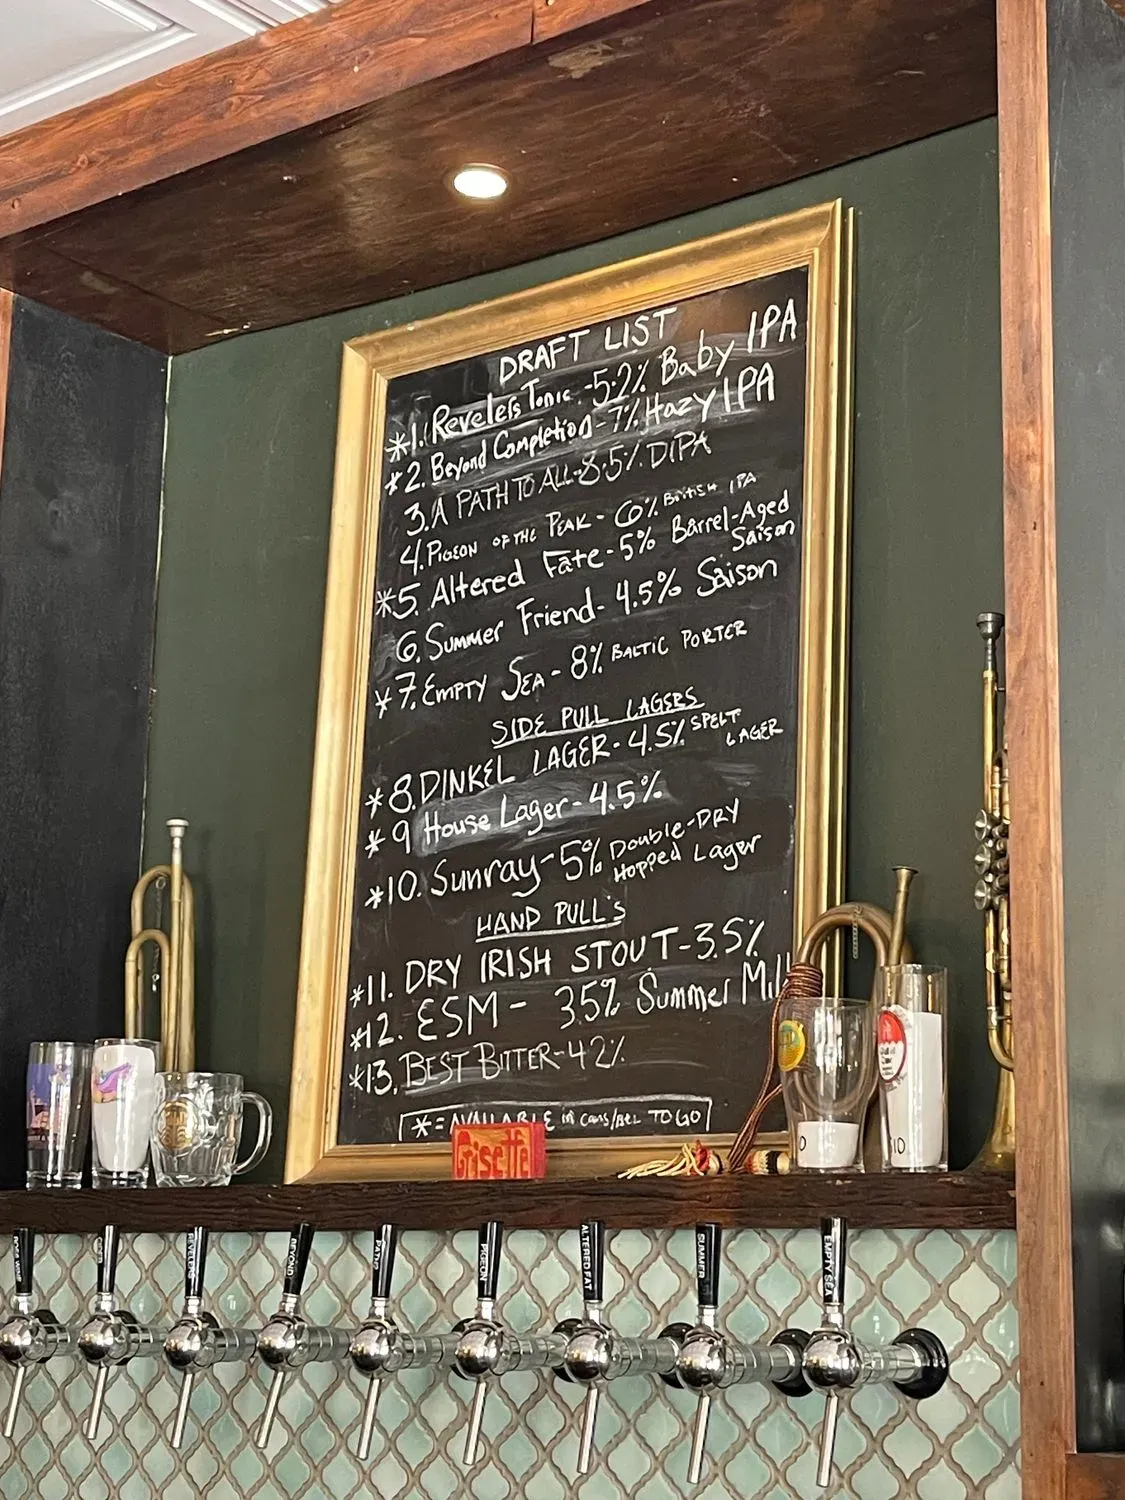 DRAFT LIST
*1. Revelers Tonic - 5.2% Baby IPA
*2. Beyond Completion - 7% Hazy IPA
3. A PATH TO ALL - 8.5% DIPA
4. PIGEON OF THE PEAK - 6% BRITISH IPA
*5. Altered Fate - 5% Barrel-Aged
Saison
6. Summer Friend - 4.5% Saison
*7. EMPTY SEA - 8% BALTIC PORTER
SIDE PULL LAGERS
*8. DINKEL LAGER - 4.5% SPELT
LAGER
*9 House Lager - 4.5%
*10. Sunray - 5% Double-DRY
Hopped Lager
HAND PULL'S
*11. DRY IRISH STOUT - 3.5%
*12. ESM - 3.5% Summer Mil
*13. BEST BITTER - 4.2%
* = AVAILABLE in cans/ TO GO
Grisette
REVELERS
BEYOND
PATH
PIGEON
ALTERED FAT
SUMMER
EMPTY SEA